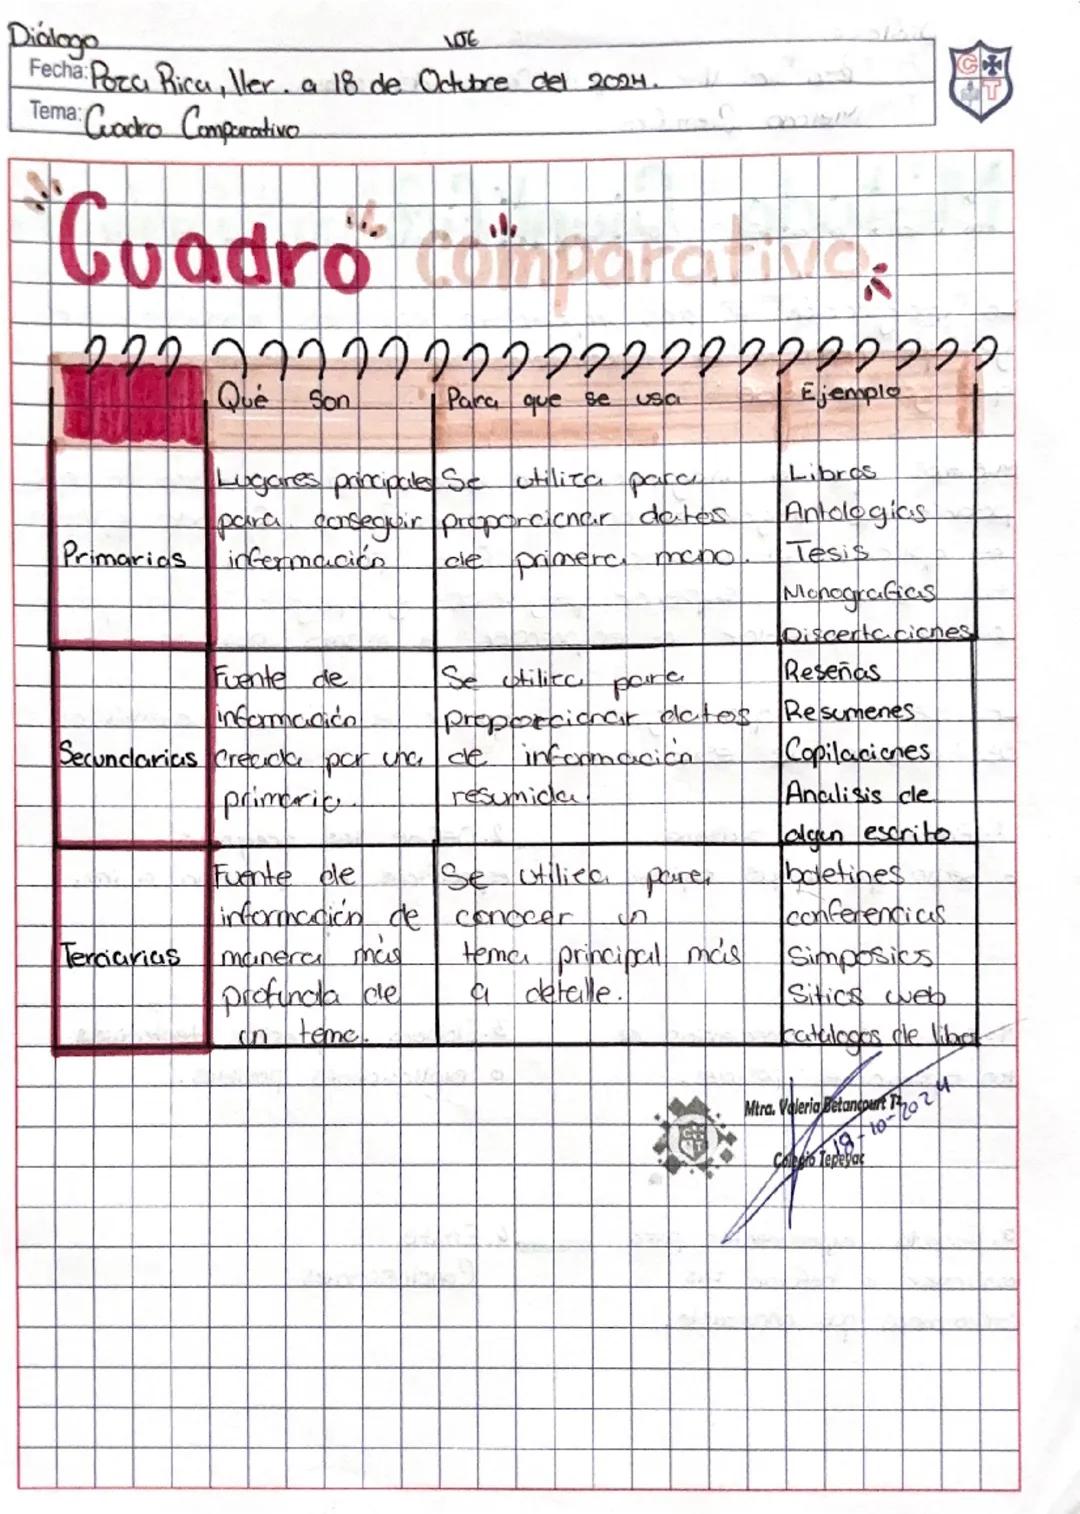 Diálogo
Fecha: Poza Rica, Ver. a 18 de Octubre del 2024.
Tema: Cuadro Comparativo
C
T
Cuadro comparativo
Qué son
Para que se usa
Ejemplo
Primarias
Lugares principales
para conseguir
información
Se utiliza para
proporcionar datos
de primera mano.
Libros
Antologías
Tesis
Monografias
Discertaciones
Secundarias
Fuente de
información
creada por una
primaria.
Se utiliza para
proporcionar datos
de información
resumida.
Reseñas
Resumenes
Copilaciones
Analisis de
algun escrito
Terciarias
Fuente de
información de
manera más
profunda de
un tema.
Se utiliza para
conocer un
tema principal más
a detalle.
boletines
conferencias
Simposios
Sitios web
catalogos de libros
Mtra. Valeria Betancourt
18-10-2024
Colegio Tepeyac